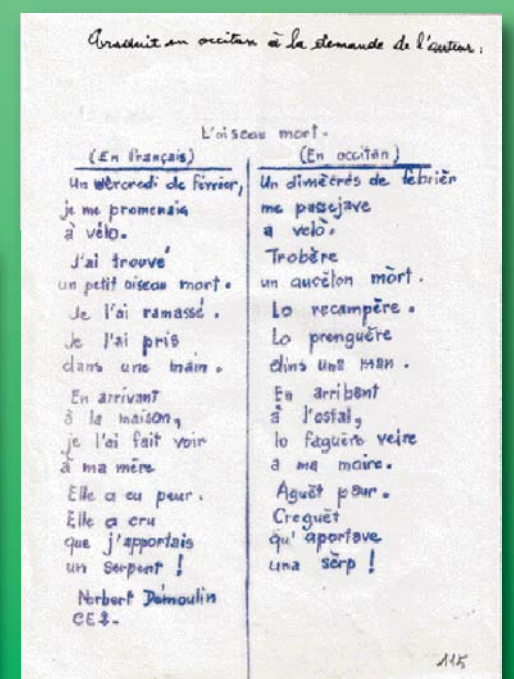 Traduit en occitan à la demande de l'auteur :
L'oiseau mort.
(En français)
Un mercredi de février,
je me promenais
à vélo.
J'ai trouvé
un petit oiseau mort.
Je l'ai ramassé.
Je l'ai pris
dans une main.
En arrivant
à la maison,
je l'ai fait voir
à ma mère
Elle a eu peur.
Elle a cru
que j'apportais
un serpent !
Norbert Demoulin
CE2.
(En occitan)
Un dimècres de febrièr
me passejave
a velò.
Trobère
un aucèlon mòrt.
Lo recampère.
Lo prenguère
dins una man.
En arribent
a l'ostal,
lo faguère veire
a ma maire.
Aguèt paur.
Creguèt
qu'aportave
una sèrp !
115